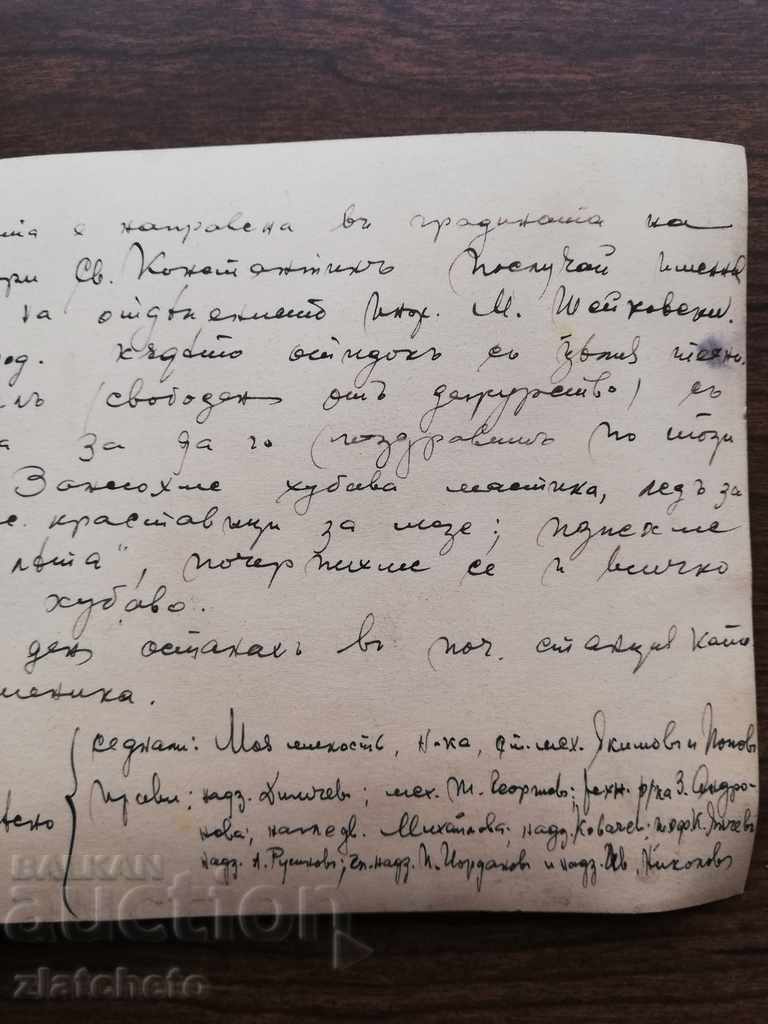 та е направена въ градината на
при Св. Константинъ по случай именния
на отдѣлението инж. М. Шейховски.
од. кѫдето отидохъ съ цѣлия техн.
(свободенъ отъ дежурство) съ
а за да го поздравимъ по този
Занесохме хубава мастика, ледъ за
краставици за мезе; изпекме
почерпихме се и всичко
хубаво.
день останахъ въ поч. станция като
меника.
седнали: Моя милность, н-ка, ст. мех. Якимовъ и Поповъ
прави: надз. Димчевъ; мех. Т. Георгиевъ; техн. р-ка З. Андро-
нова; Михайлова; надз. Ковачев; К. Янчевъ
надз. А. Русиновъ; гл. надз. П. Йордановъ и надз. Ив. Николовъ
BALKAN
auction
zlatcheto